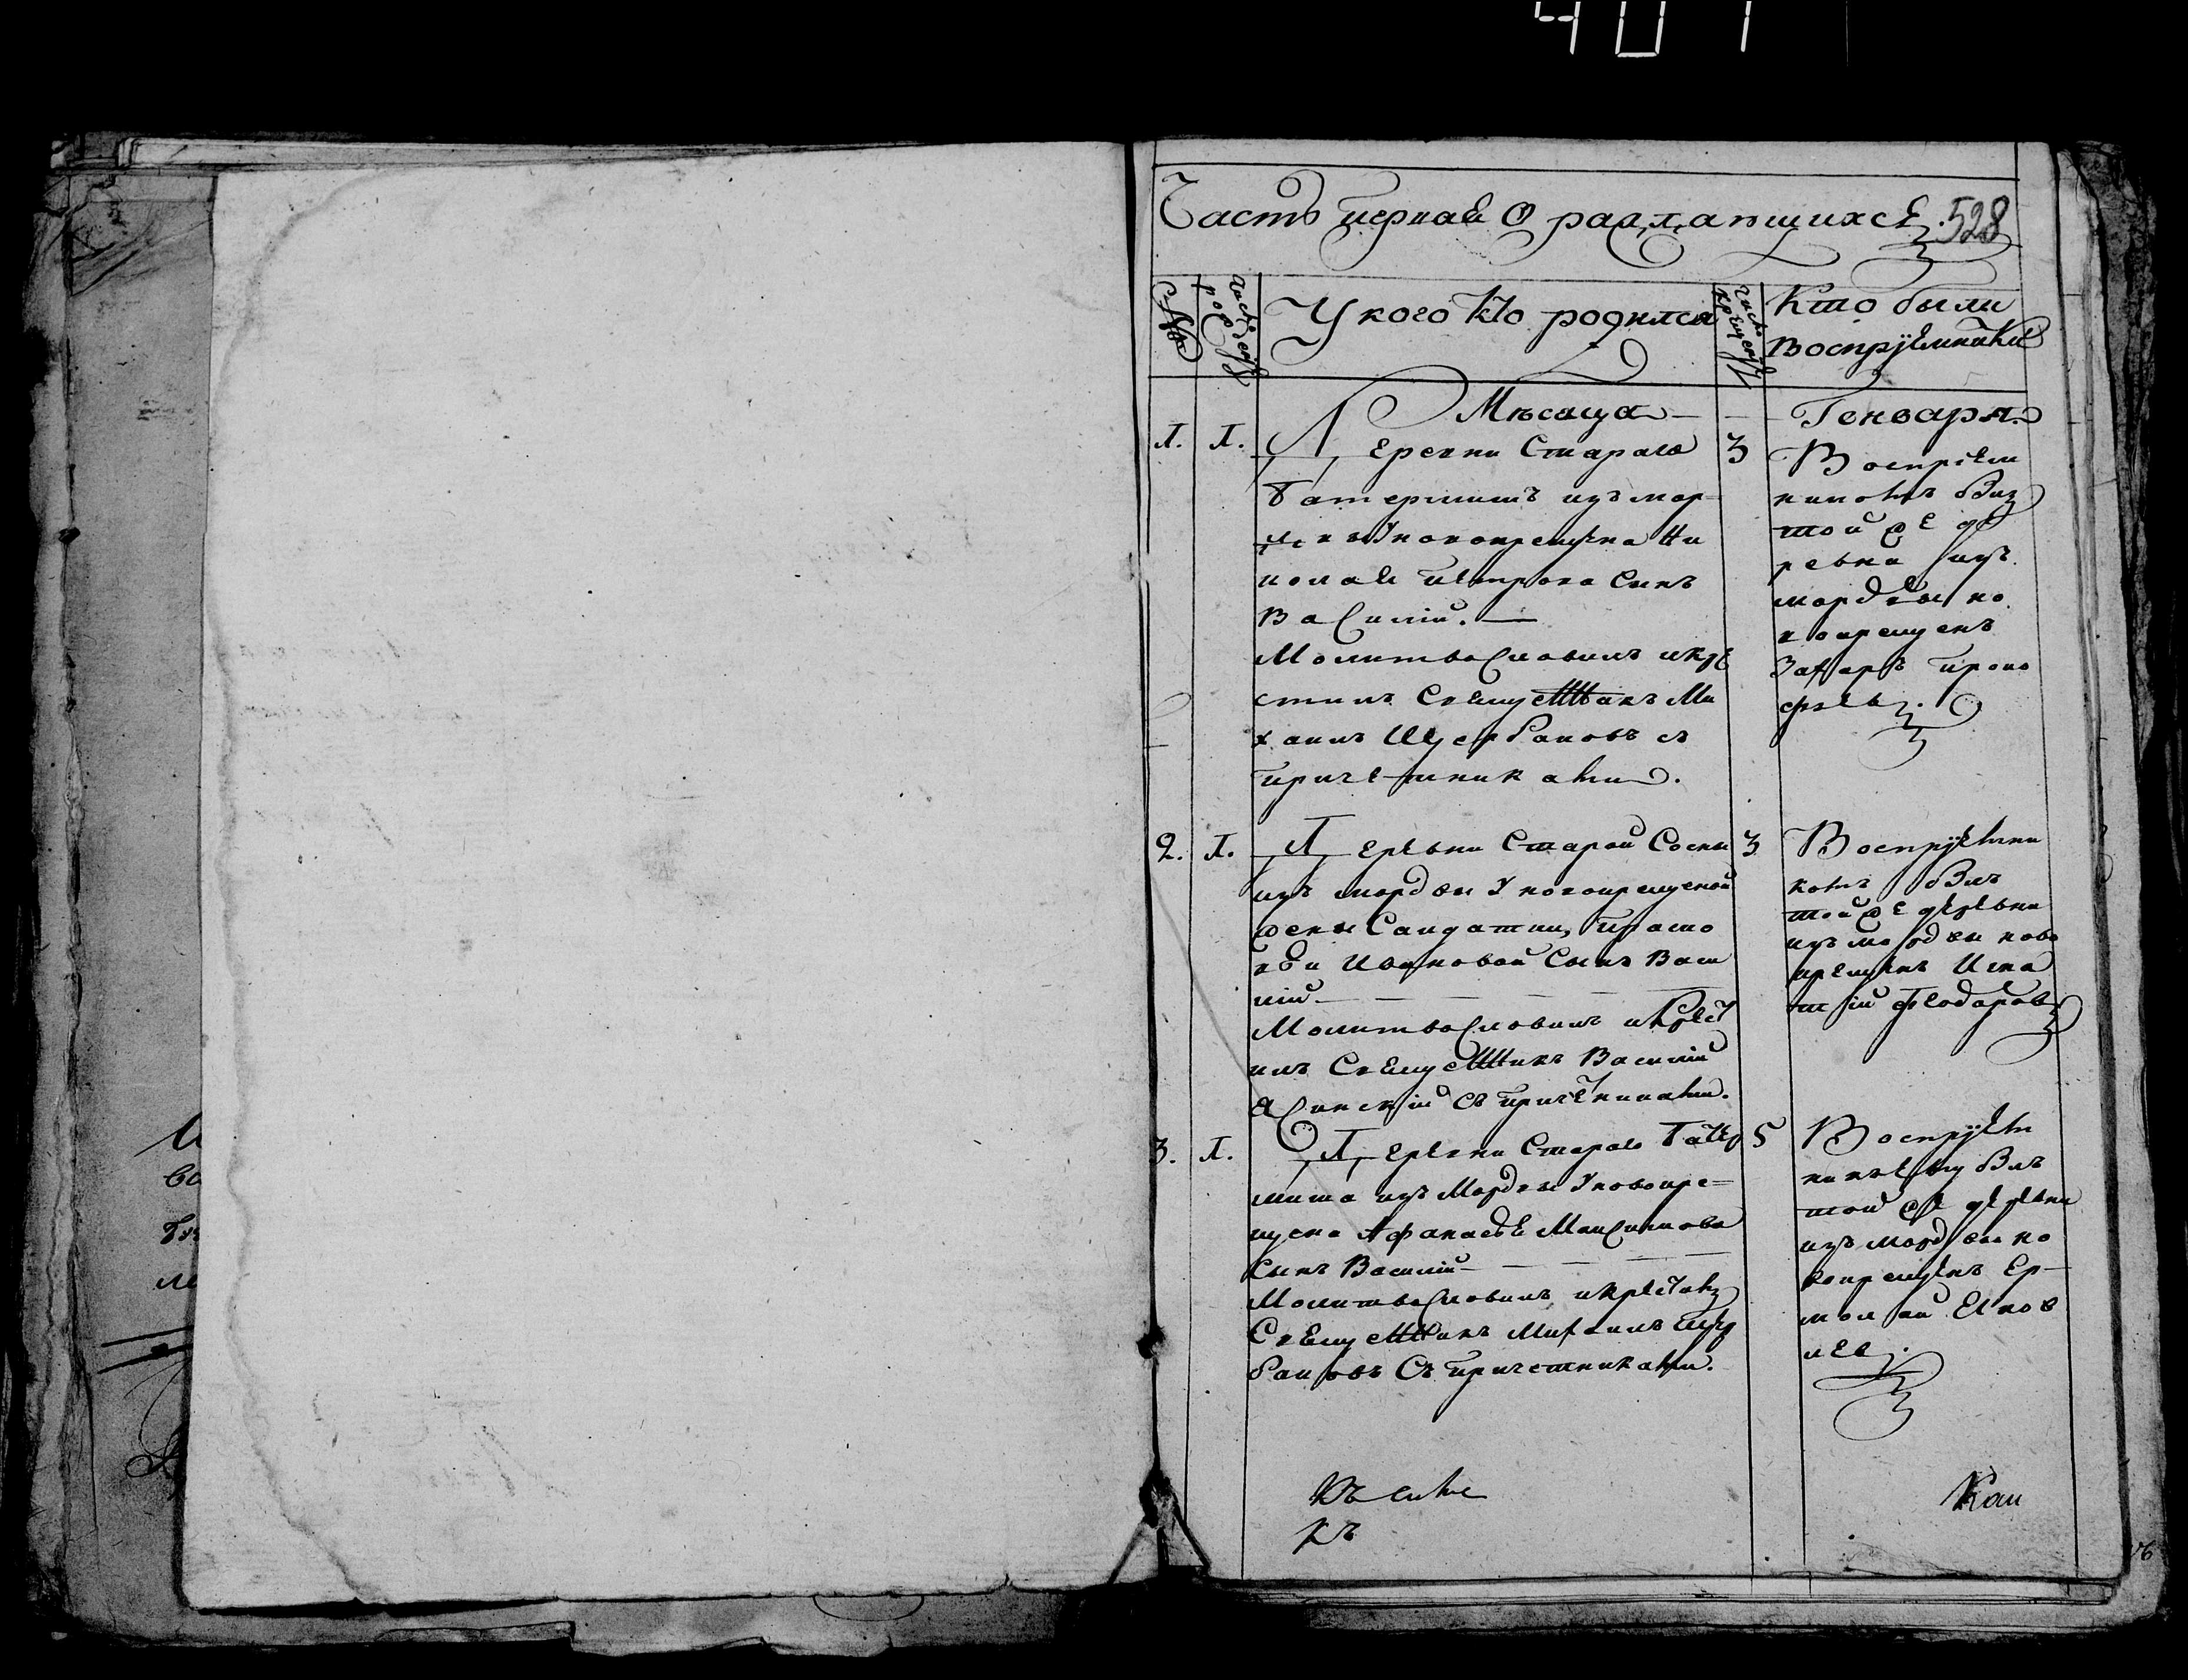 407
Часть первая О раждающихся.
528
Число рожденiя
У кого кто родился
Число крещенiя
Кто были
восприемники
Мѣсяца
Генваря
1. 1. Деревни Старого 3
Батермишъ изъ мор
двы У новокрещена Ни
колая Петрова Сынъ
Василий.
Молитвословилъ и кре
стилъ Священникъ Ми
хаилъ Щербаковъ съ
причетниками.
Восприем
никомъ былъ
той же де
ревни изъ
мордвы но
вокрещенъ
Захаръ Проко
фьевъ.
2. 1. Деревни Старой Сосны 3
изъ мордвы У новокрещеной
жены Салдатки, Праско
вьи Ивановой Сынъ Васи
лий
Молитвословилъ и Крест
илъ Священникъ Василий
съ причетниками.
Восприемни
комъ былъ
той же деревни
изъ мордвы ново
крещенъ Игна
тий Феодоровъ
3. 1. Деревни Старого Батер 5
миша изъ Мордвы У новокре=
щена Афанасья Максимова
Сынъ Василий
Молитвословилъ и крестилъ
Священникъ Михаилъ Щер
баковъ Съ причетниками.
Восприем
никъ былъ
той же деревни
изъ мордвы но
вокрещенъ Ер
молай Яков
лев.
Къ сим
Къ